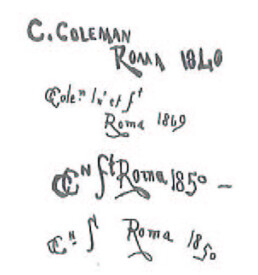 C. COLEMAN
ROMA 1840
CCole.ⁿ Iⁿ et fᵗ
Roma 1869
CCᴺ fᵗ Roma 1850 –
CCᴺ f Roma 1850